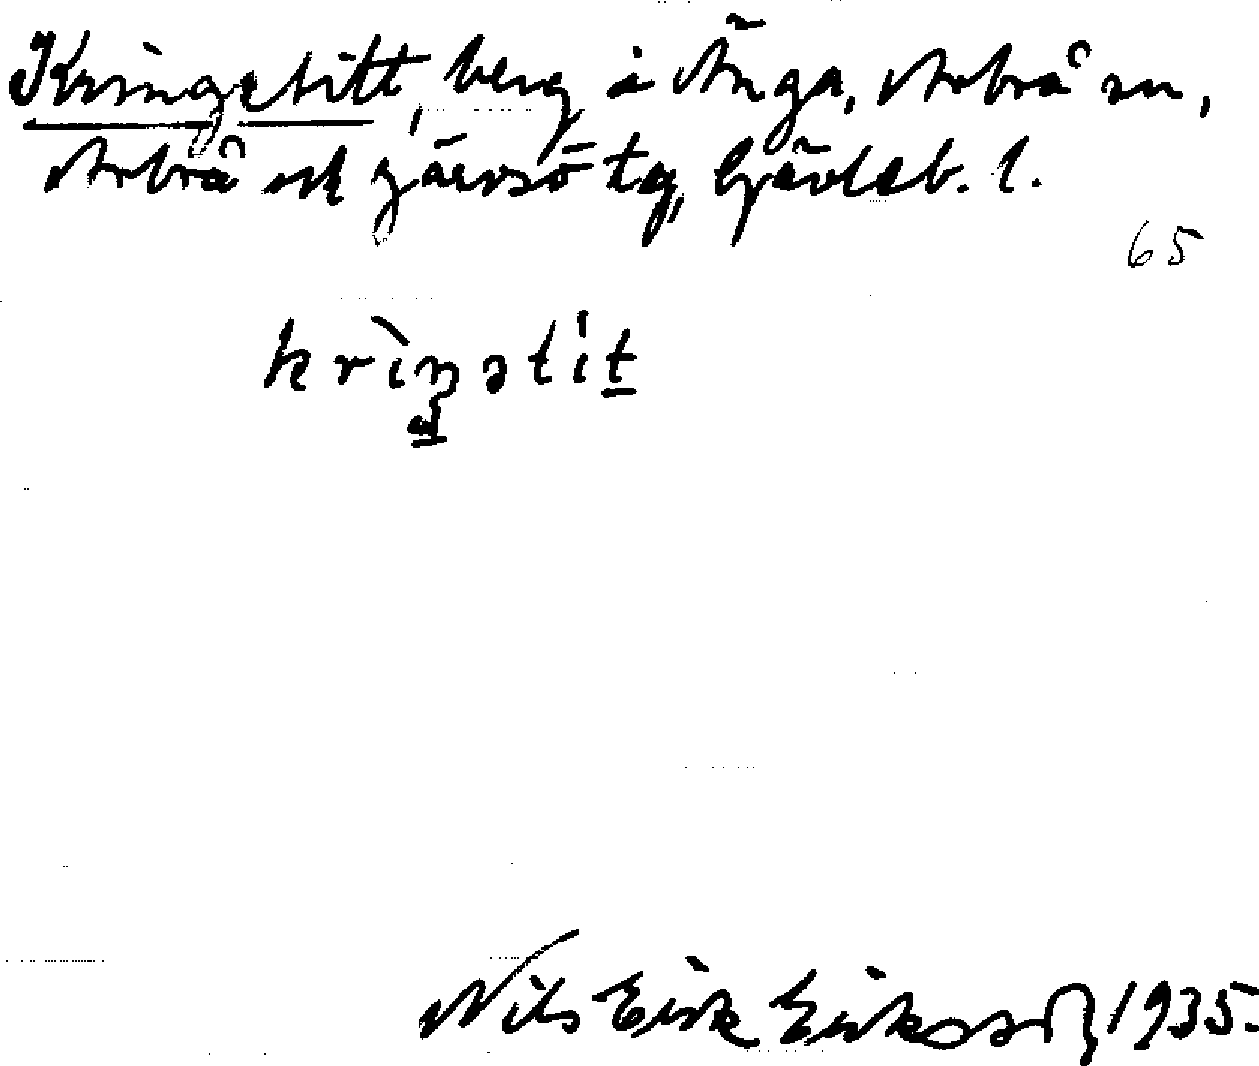 Kringetitt, berg i Änga, Arbrå sn,
Arbrå och Järvsö tg, Gävleb. l.
65
krìŋətit
Nils Eirik Eiriksson 1935.